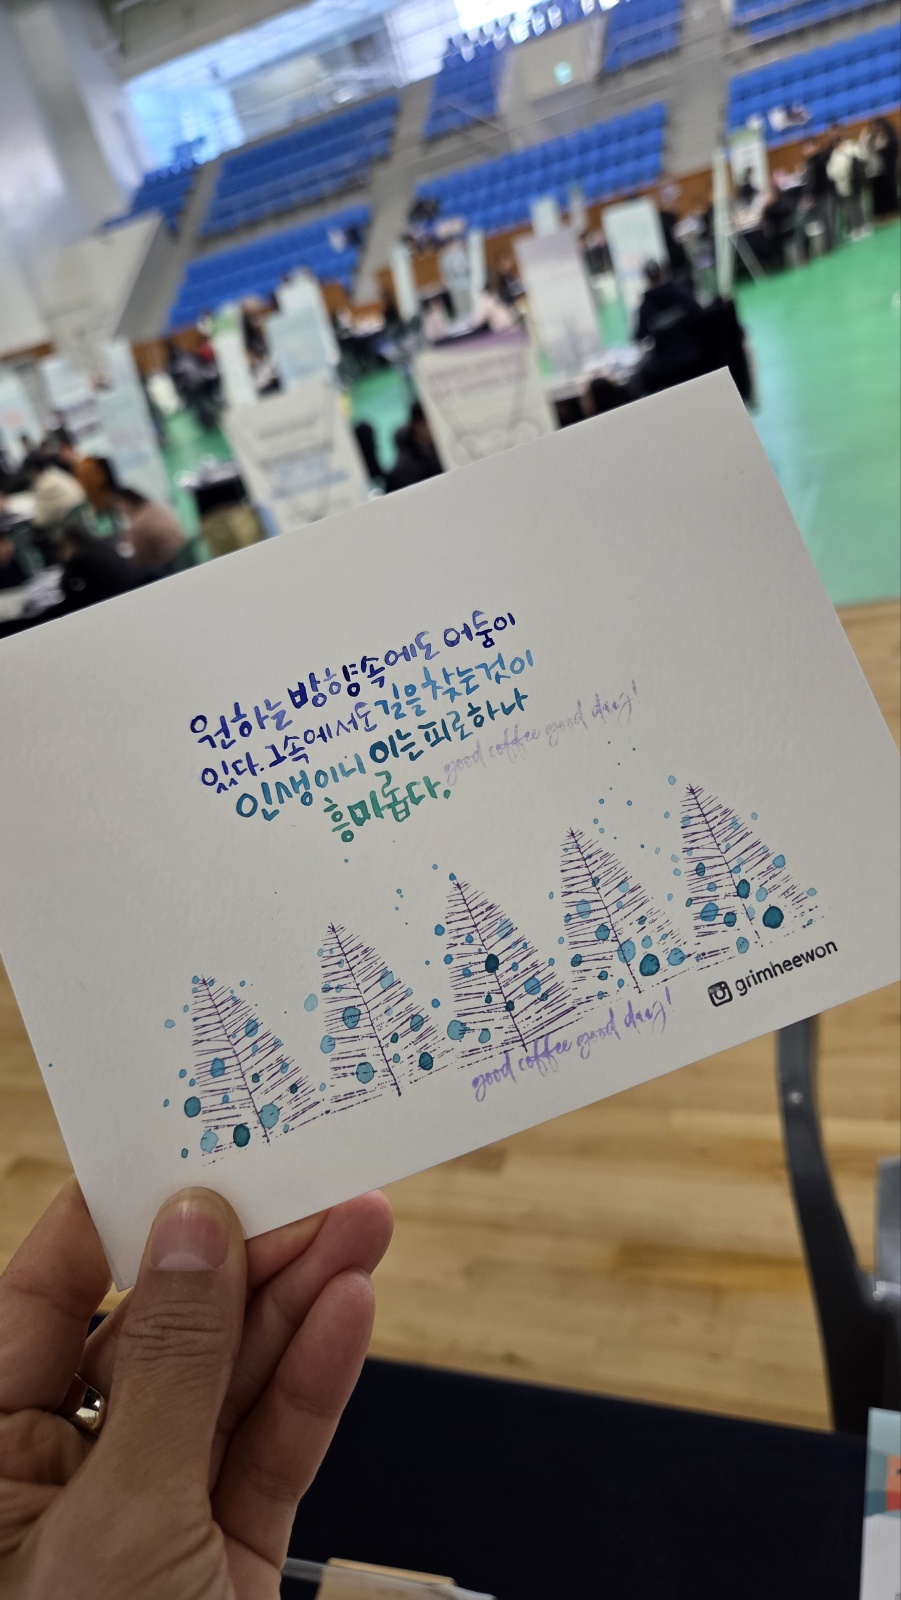 원하는 방향속에도 어둠이
있다. 그속에서도 길을 찾는것이
인생이니 이는 피로하나
흥미롭다.
good coffee good day!
good coffee good day!
grimheewon